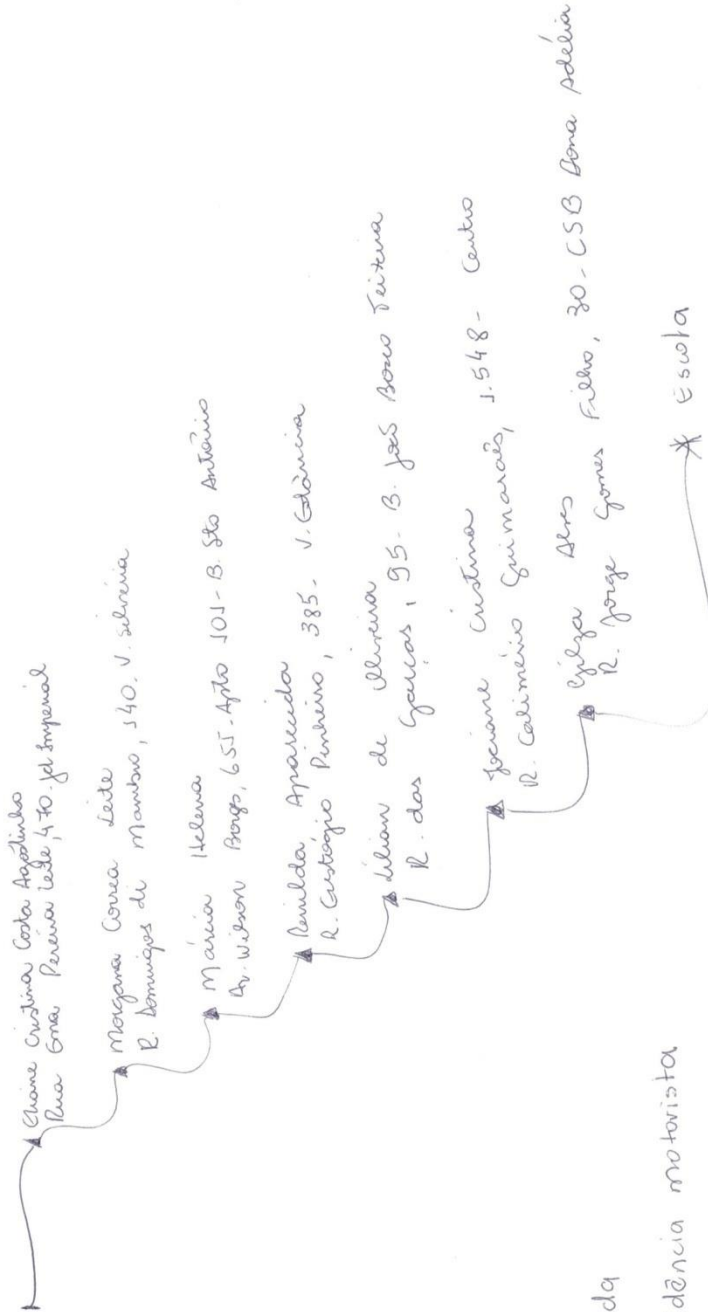 Eliane Cristina Costa Agostinho
Rua Ema Pereira Leite, 470-jd Imperial
Morgana Correa Leite
R. Domingos di Mambro, 140. V. Silvéria
Márcia Helena
Av. Wilson Borgo, 655-Apto 101-B. Sto Antônio
Renilda Aparecida
R. Custógio Pinheiro, 385- V. Estância
Lílian de Oliveira
R. das Garças, 95- B. José Bosco Teixeira
Joriane Cristina
R. Calimério Guimarães, 1.548- Centro
Gilza Alves
R. Jorge Gomes Filho, 30-CSB Dona Adélia
Escola
da
dência motorista